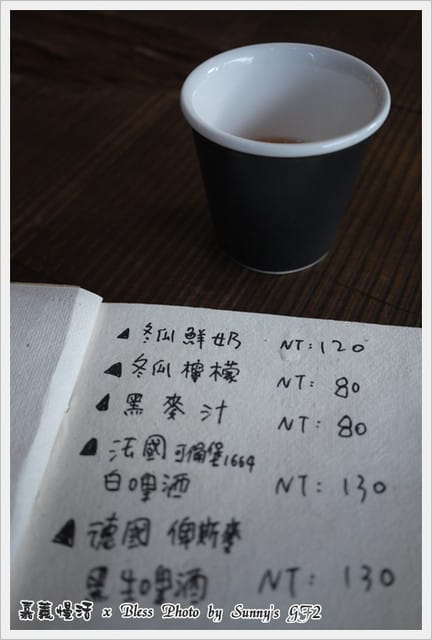 ▲ 冬瓜鮮奶 NT:120
▲ 冬瓜檸檬 NT: 80
▲ 黑麥汁 NT: 80
▲ 法國可倫堡1664
白啤酒 NT: 130
▲ 德國 俾斯麥
黑生啤酒 NT: 130
嘉義慢活 x Bless Photo by Sunny's GF2